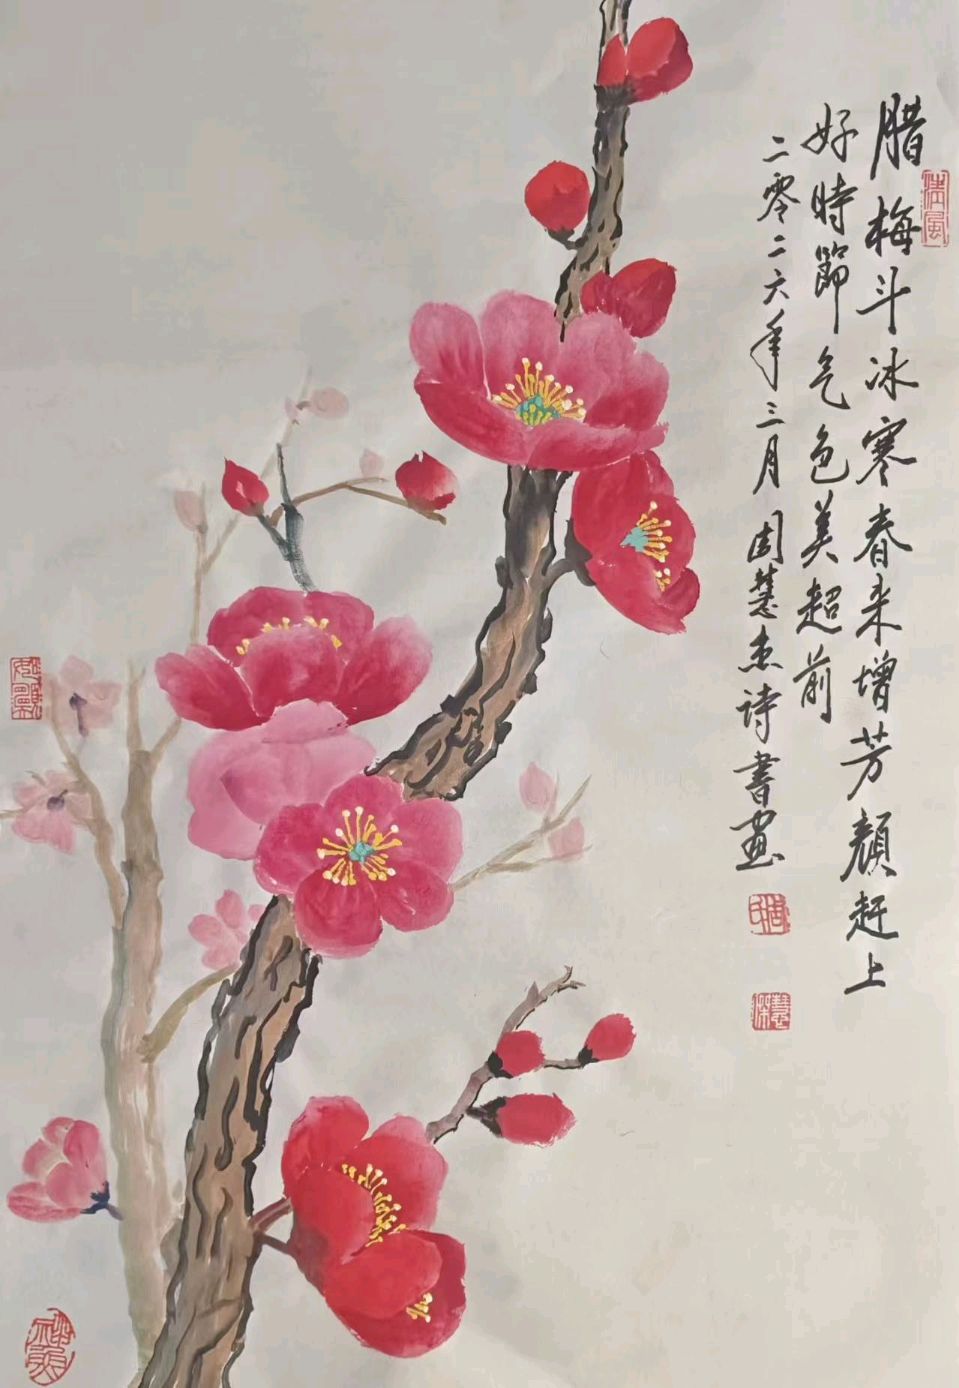 腊梅斗冰寒春来增芳顏赶上
好時節气色美超前
二零二六年三月周慧杰诗書画
清風